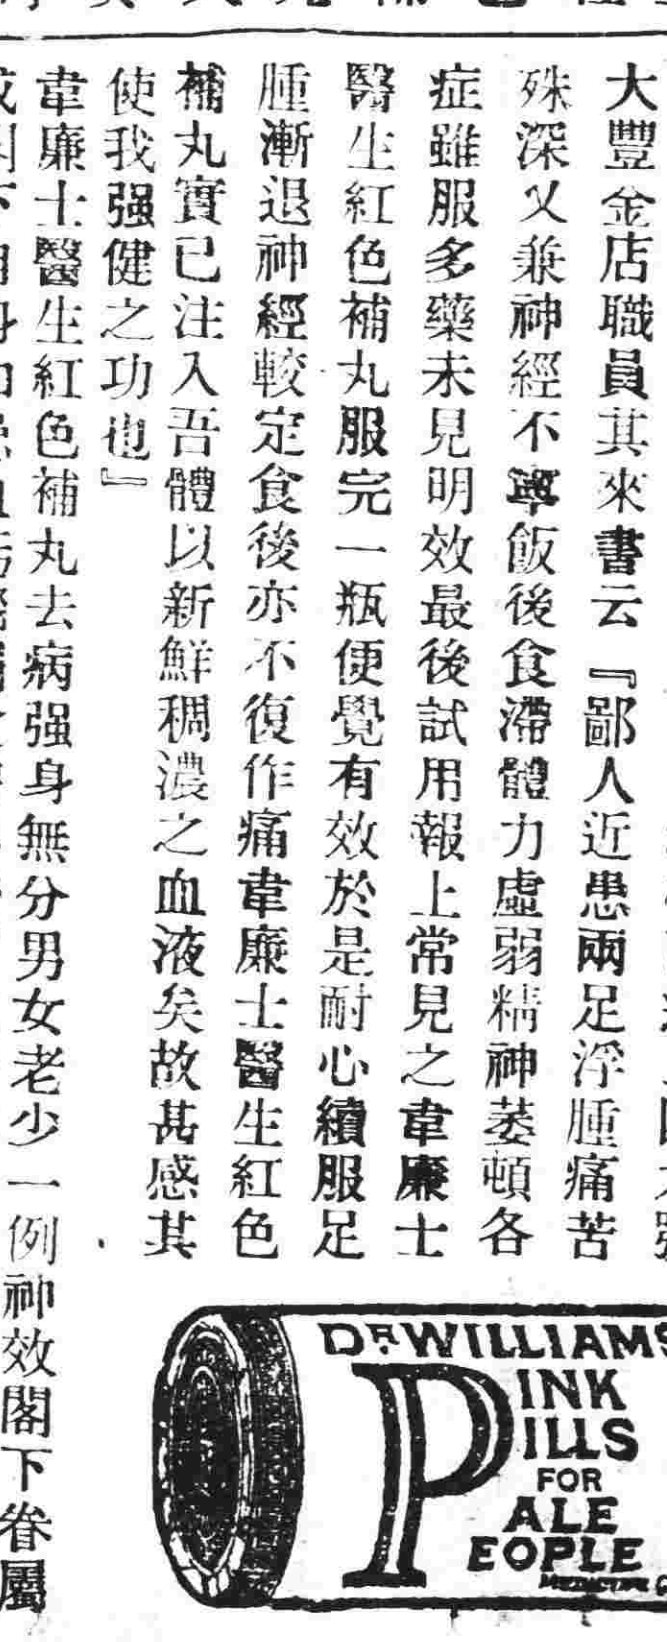 大豐金店職員其來書云『鄙人近患兩足浮腫痛苦
殊深又兼神經不寧飯後食滯體力虛弱精神萎頓各
症雖服多藥未見明效最後試用報上常見之韋廉士
醫生紅色補丸服完一瓶便覺有效於是耐心續服足
腫漸退神經較定食後亦不復作痛韋廉士醫生紅色
補丸實已注入吾體以新鮮稠濃之血液矣故甚感其
使我强健之功也』
韋廉士醫生紅色補丸去病强身無分男女老少一例神效閣下眷屬
DR. WILLIAMS
PINK
PILLS
FOR
PALE
PEOPLE